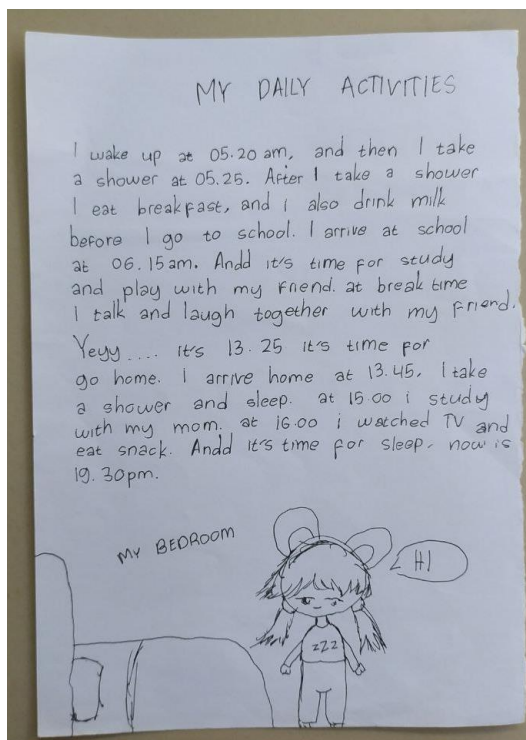 MY DAILY ACTIVITIES
I wake up at 05.20 am, and then I take
a shower at 05.25. After I take a shower
I eat breakfast, and i also drink milk
before I go to school. I arrive at school
at 06.15am. Andd it's time for study
and play with my friend. at break time
I talk and laugh together with my friend.
Yeyy.... it's 13.25 it's time for
go home. I arrive home at 13.45, I take
a shower and sleep. at 15.00 i study
with my mom. at 16.00 i watched TV and
eat snack. Andd it's time for sleep. now is
19.30pm.
MY BEDROOM
HI
zzz